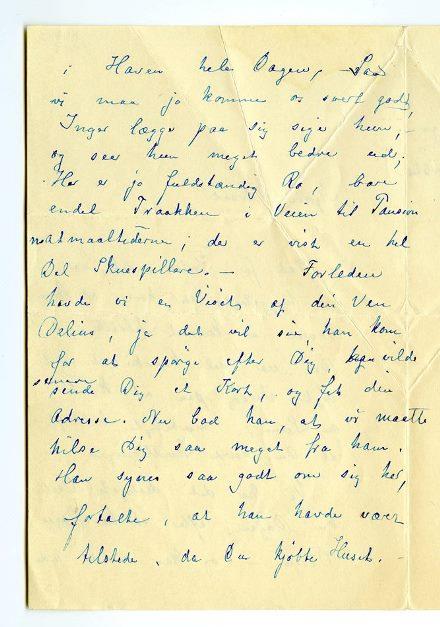 i Haven hele Dagen, Saa
vi maa jo komme os svært godt,
Inger lægge paa sig siger hun, -
og seer hun meget bedre ud;
Her er jo fuldstændig Ro, bare
endel Traakken i Veien til Pansion
maaltiderne; der er vist en hel
Del Skuespillere. — Forleden
havde vi en Visit af din Ven
Delius, ja det vil sie, han kom
for at spörge efter Dig, vilde
senere
sende Dig et Kort, og fik din
Adresse. Nu bad han, at vi maatte
hilse Dig saa meget fra ham.
Han synes saa godt om sig her,
fortalte, at han havde været
tilstede, da Du kjöbte Huset. -